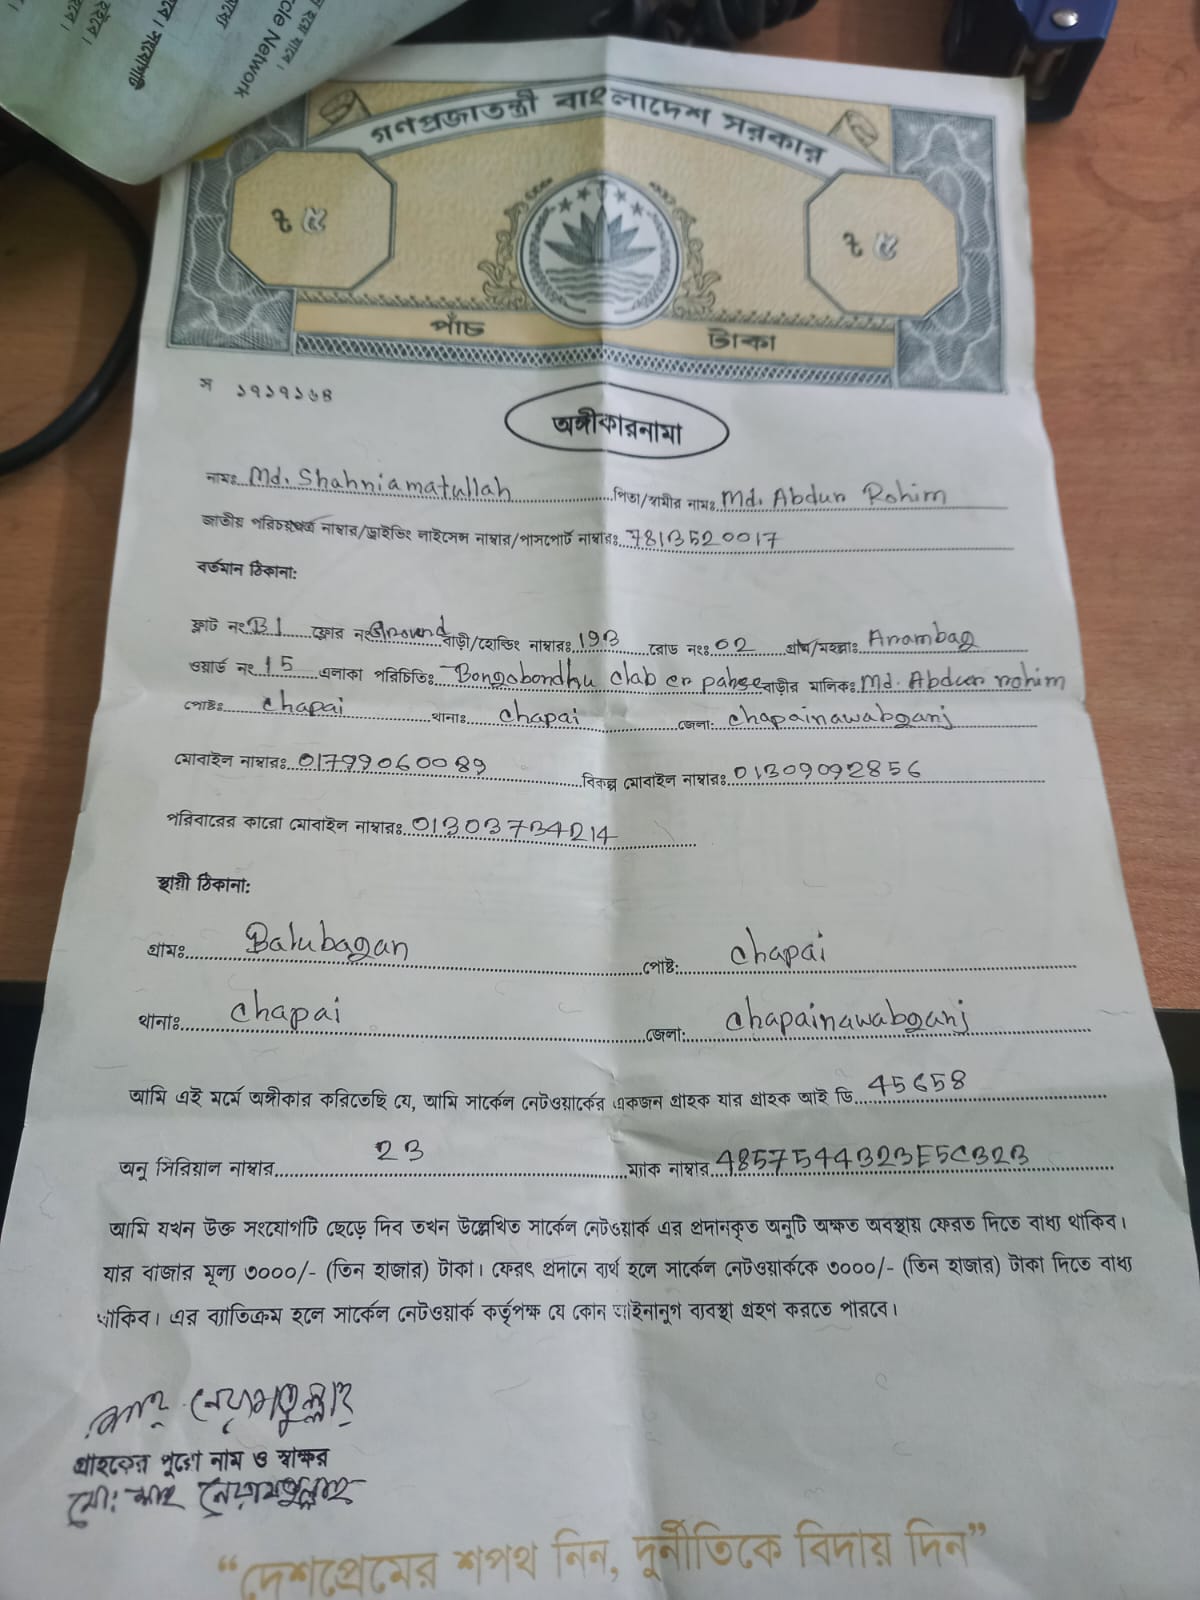 cle Network
গণপ্রজাতন্ত্রী বাংলাদেশ সরকার
৳ ৫ ৳ ৫
পাঁচ টাকা
স ১৭১৭১৬৪
অঙ্গীকারনামা
নামঃ Md. Shahniamatullah পিতা/স্বামীর নামঃ Md. Abdur Rohim
জাতীয় পরিচয়পত্র নাম্বার/ড্রাইভিং লাইসেন্স নাম্বার/পাসপোর্ট নাম্বারঃ 7813520017
বর্তমান ঠিকানা:
ফ্লাট নং B1 ফ্লোর নং Ground বাড়ী/হোল্ডিং নাম্বারঃ 193 রোড নংঃ 02 গ্রাম/মহল্লাঃ Arambag
ওয়ার্ড নং 15 এলাকা পরিচিতিঃ Bongobondhu clab er pahse বাড়ীর মালিকঃ Md. Abdur rohim
পোষ্টঃ chapai থানাঃ chapai জেলা: chapainawabganj
মোবাইল নাম্বারঃ 01799060089 বিকল্প মোবাইল নাম্বারঃ 01309092856
পরিবারের কারো মোবাইল নাম্বারঃ 01303734214
স্থায়ী ঠিকানা:
গ্রামঃ Balubagan পোষ্ট: chapai
থানাঃ chapai জেলা: chapainawabganj
আমি এই মর্মে অঙ্গীকার করিতেছি যে, আমি সার্কেল নেটওয়ার্কের একজন গ্রাহক যার গ্রাহক আই ডি 45658
অনু সিরিয়াল নাম্বার 23 ম্যাক নাম্বার 4857544323E5C323
আমি যখন উক্ত সংযোগটি ছেড়ে দিব তখন উল্লেখিত সার্কেল নেটওয়ার্ক এর প্রদানকৃত অনুটি অক্ষত অবস্থায় ফেরত দিতে বাধ্য থাকিব।
যার বাজার মূল্য ৩০০০/- (তিন হাজার) টাকা। ফেরৎ প্রদানে ব্যর্থ হলে সার্কেল নেটওয়ার্ককে ৩০০০/- (তিন হাজার) টাকা দিতে বাধ্য
থাকিব। এর ব্যাতিক্রম হলে সার্কেল নেটওয়ার্ক কর্তৃপক্ষ যে কোন আইনানুগ ব্যবস্থা গ্রহণ করতে পারবে।
শাহ নেয়ামতুল্লাহ
গ্রাহকের পুরো নাম ও স্বাক্ষর
মো: শাহ নেয়ামতুল্লাহ
“দেশপ্রেমের শপথ নিন, দুর্নীতিকে বিদায় দিন”